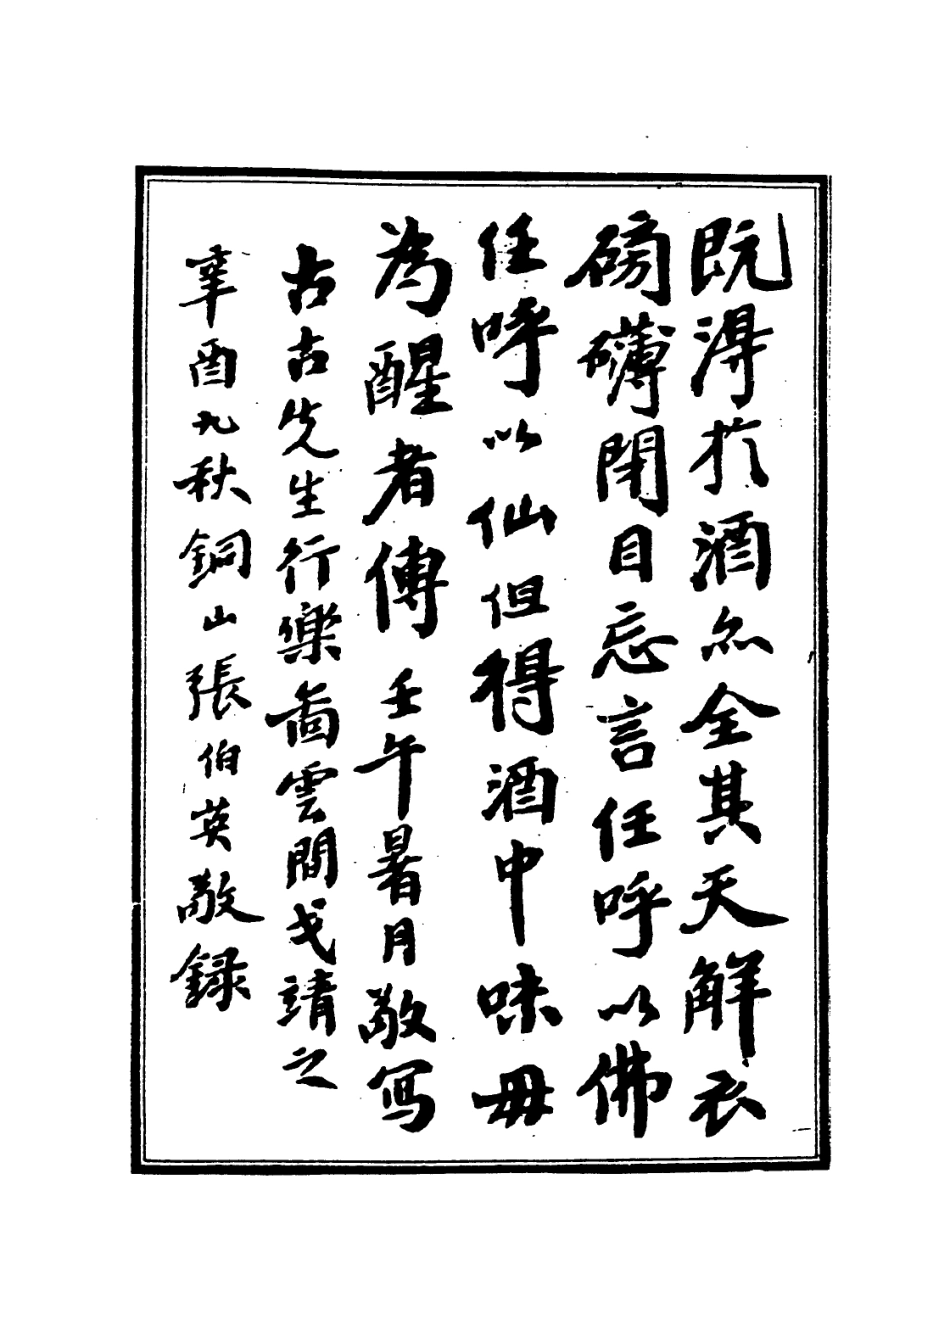 既得於酒亦全其天解衣
磅礴閉目忘言任呼以佛
任呼以仙但得酒中味毋
為醒者傳 壬午暑月敬寫
古古先生行樂圖雲間戈靖之
辛酉九秋銅山張伯英敬録